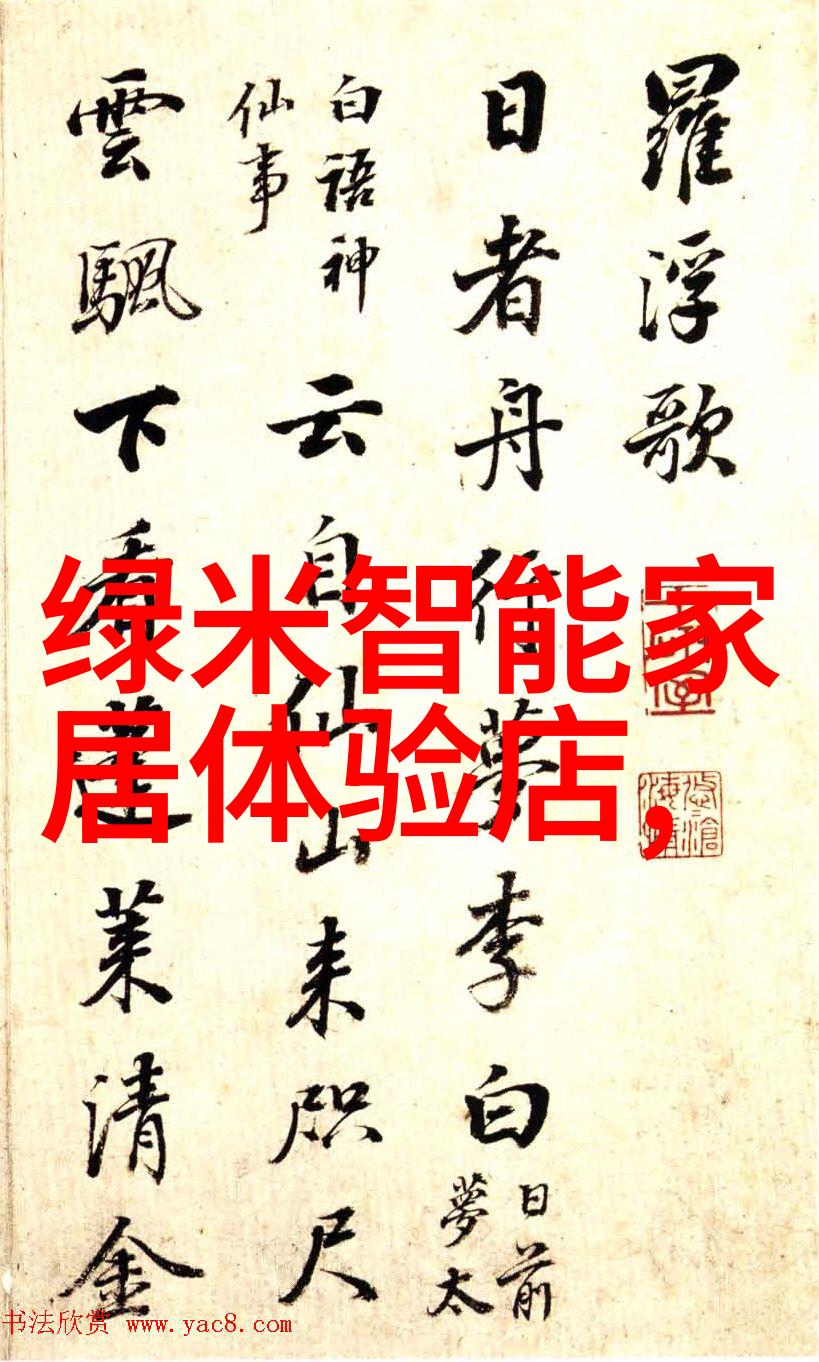 羅浮歌
日者舟行夢李白
日前
夢太
白語神
仙事
云自仙山来咫尺
雲颿下看蓬萊清金
绿米智能家
居体验店,
书法欣赏 www.yac8.com